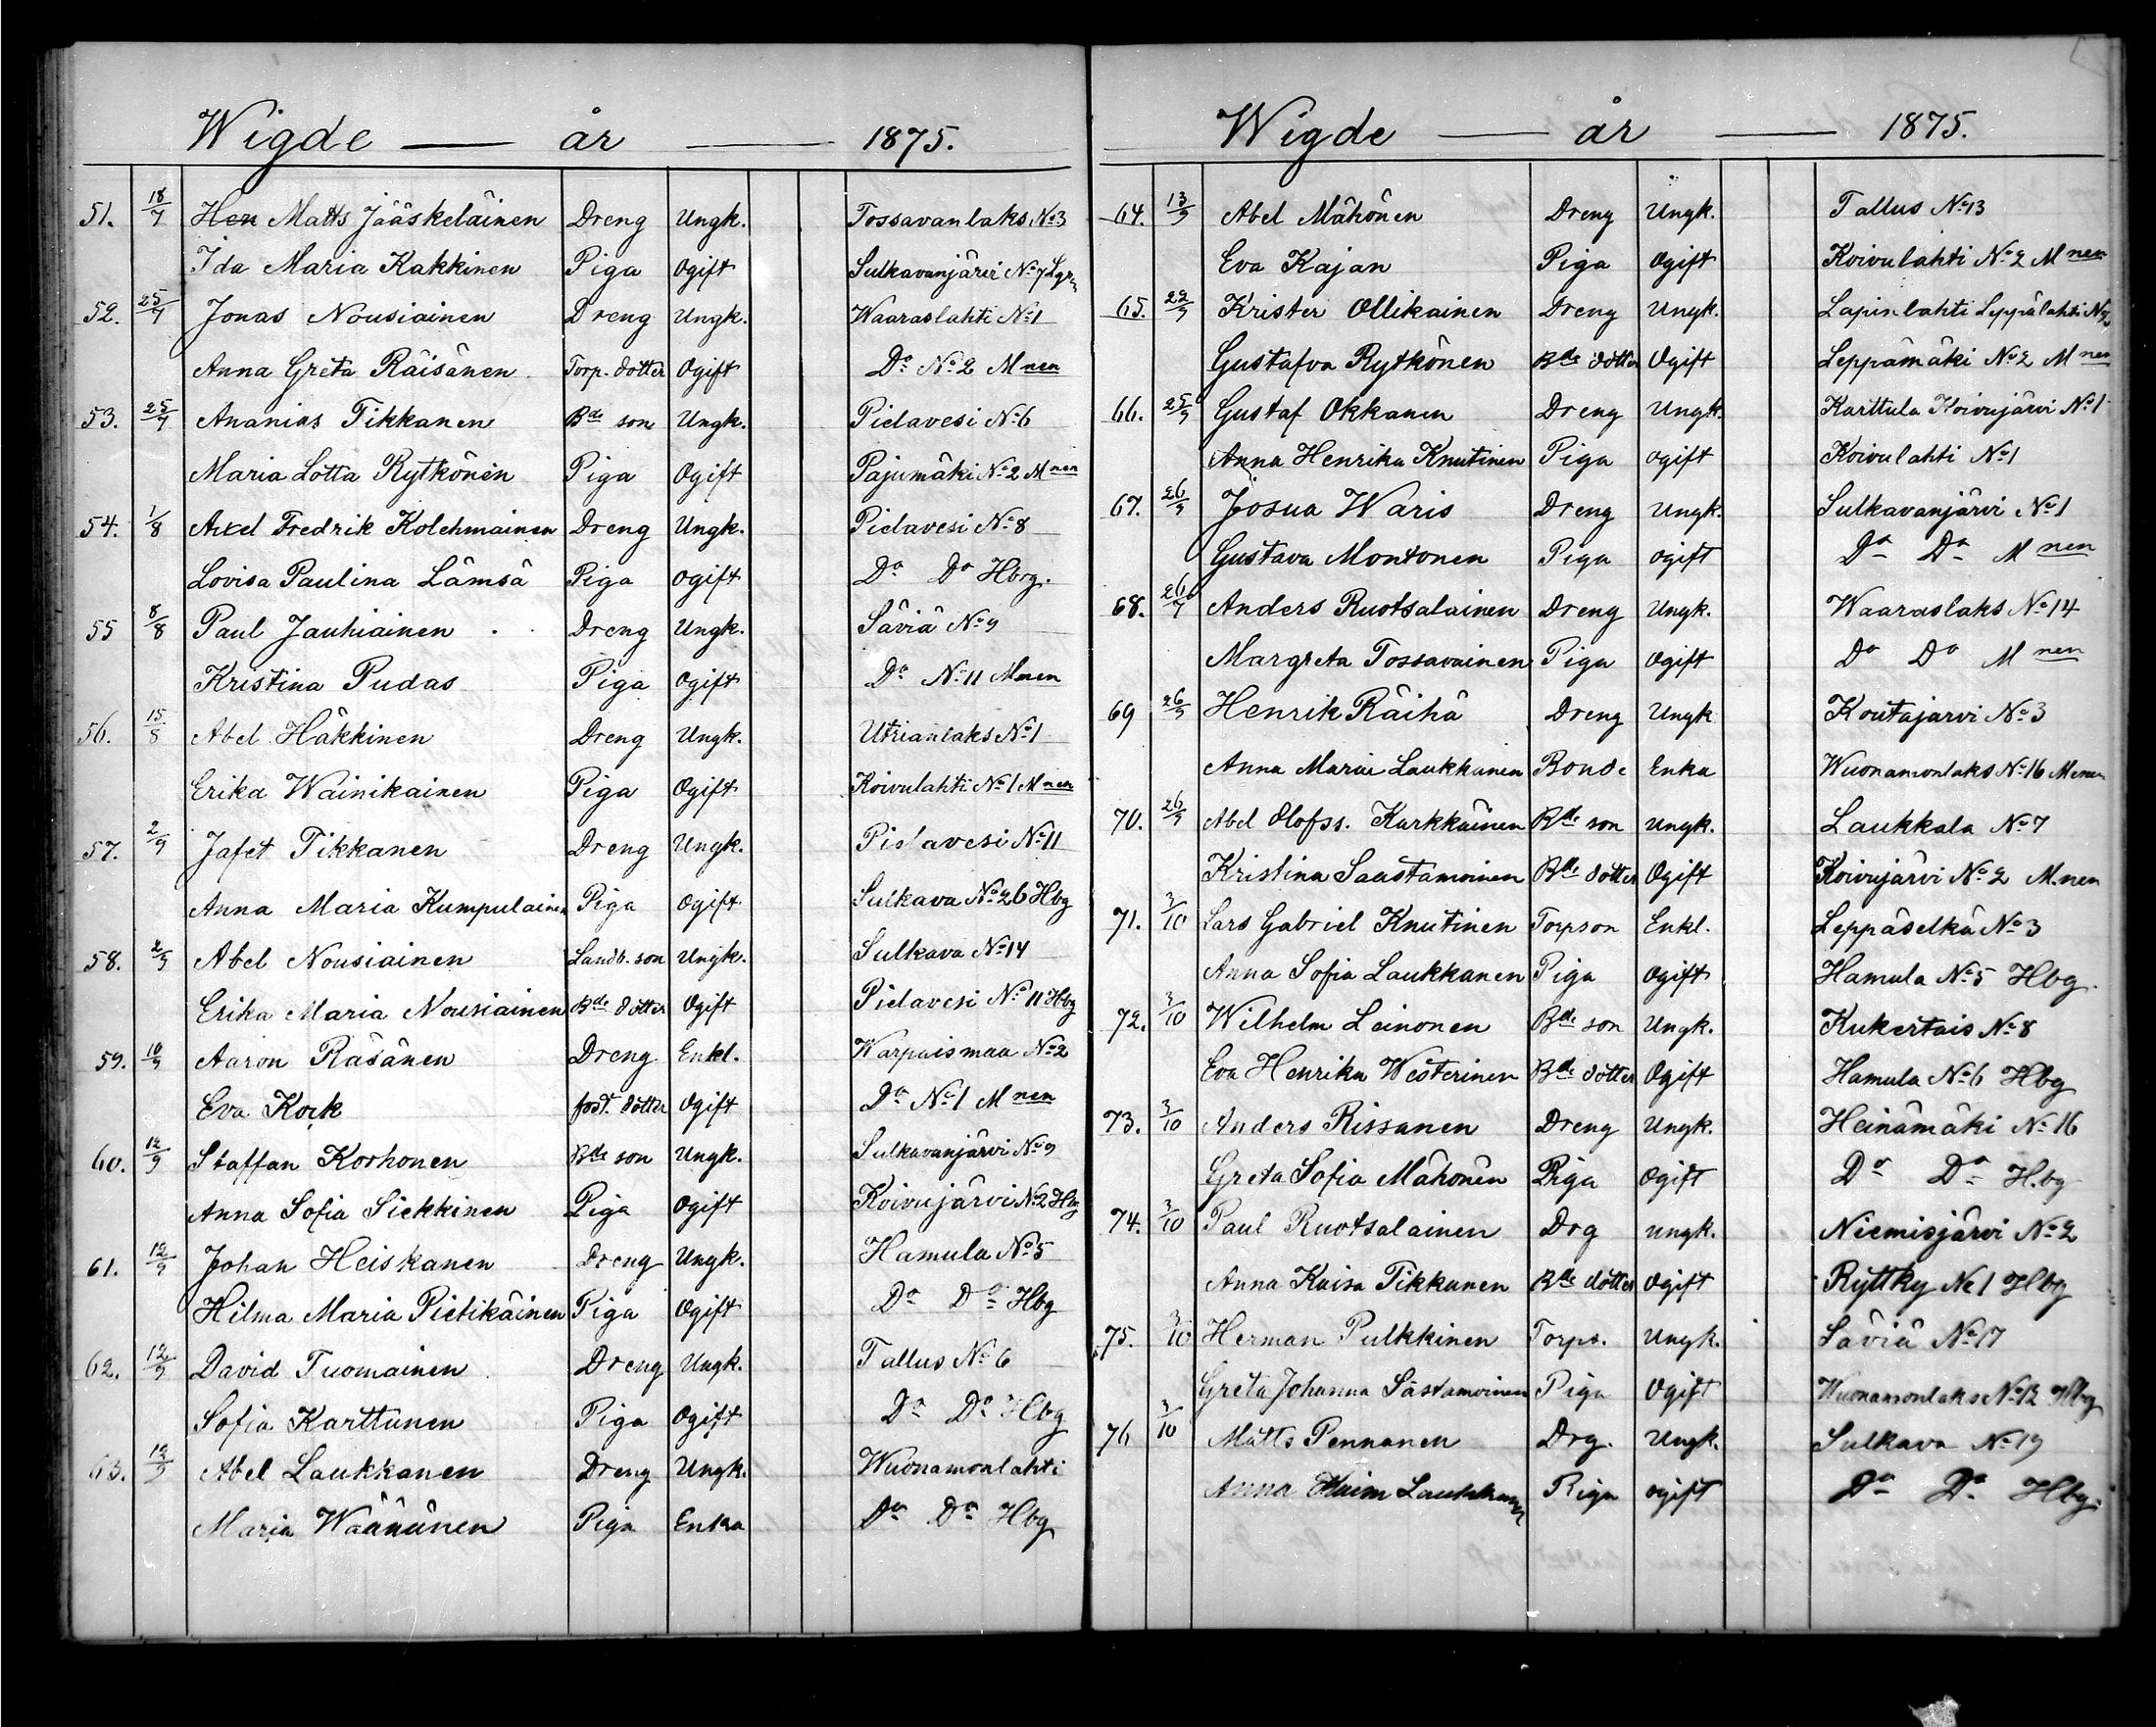 Wigde — år — 1875.
51. 18/7 Hen Matts Jääskeläinen Dreng Ungk. Tossavanlaks No 3
Ida Maria Kakkinen Piga Ogift Sulkavanjärvi No 7
52. 25/7 Jonas Nousiainen Dreng Ungk. Waaraslahti No 1
Anna Greta Räisänen Torp. dotter Ogift Do No 2 Mnen
53. 25/7 Ananias Tikkanen Bde son Ungk. Pielavesi No 6
Maria Lotta Rytkönen Piga Ogift Pajumäki No 2 Mnen
54. 1/8 Axel Fredrik Kolehmainen Dreng Ungk. Pielavesi No 8
Lovisa Paulina Lämsä Piga ogift Do Do Hbrg.
55 8/8 Paul Jauhiainen Dreng Ungk. Säviä No 9
Kristina Pudas Piga ogift Do No 11 Mnen
56. 15/8 Abel Häkkinen Dreng Ungk. Utrianlaks No 1
Erika Wäinikainen Piga Ogift Koivulahti No 1 Mnen
57. 2/9 Jafet Tikkanen Dreng Ungk. Pielavesi No 11
Anna Maria Kumpulainen Piga Ogift Sulkava No 26 Hbg
58. 2/9 Abel Nousiainen Landb. son Ungk. Sulkava No 14
Erika Maria Nousiainen Bde dotter Ogift Pielavesi No 11 Hbg
59. 10/9 Aaron Räsänen Dreng Enkl. Warpaismaa No 2
Eva Kock fost. dotter Ogift Do No 1 Mnen
60. 12/9 Staffan Korhonen Bde son Ungk. Sulkavanjärvi No 9
Anna Sofia Siekkinen Piga Ogift Koivujärvi No 2 Hbg
61. 12/9 Johan Heiskanen Dreng Ungk. Hamula No 5
Hilma Maria Pietikäinen Piga Ogift Do Do Hbg
62. 12/9 David Tuomainen Dreng Ungk. Tallus No 6
Sofia Karttunen Piga Ogift Do Do Hbg
63. 12/9 Abel Laukkanen Dreng Ungk. Wuonamonlahti
Maria Wäänänen Piga Enka Do Do Hbg
Wigde — år — 1875.
64. 13/9 Abel Mähönen Dreng Ungk. Tallus No 13
Eva Kajan Piga Ogift Koivulahti No 2 Mnen
65. 22/9 Krister Ollikainen Dreng Ungk. Lapinlahti Leppälahti
Gustafva Rytkönen Bde dotter Ogift Leppämäki No 2 Mnen
66. 25/9 Gustaf Okkanen Dreng Ungk. Karttula Koivujärvi No 1
Anna Henrika Knutinen Piga ogift Koivulahti No 1
67. 26/9 Josua Waris Dreng Ungk. Sulkavanjärvi No 1
Gustava Montonen Piga ogift Do Do Mnen
68. 26/7 Anders Ruotsalainen Dreng Ungk. Waaraslaks No 14
Margreta Tossavainen Piga ogift Do Do Mnen
69 26/9 Henrik Räihä Dreng Ungk Koutajarvi No 3
Anna Maria Laukkanen Bonde Enka Wuonamonlaks No 16 Mnen
70. 26/9 Abel Olofss. Karkkäinen Bde son Ungk. Laukkala No 7
Kristina Saastamoinen Bde dotter Ogift Koivujärvi No 2 Mnen
71. 3/10 Lars Gabriel Knutinen Torpson Enkl. Leppäselkä No 3
Anna Sofia Laukkanen Piga Ogift Hamula No 5 Hbg.
72. 3/10 Wilhelm Leinonen Bde son Ungk. Kukertais No 8
Eva Henrika Westerinen Bde dotter Ogift Hamula No 6 Hbg
73. 3/10 Anders Rissanen Dreng Ungk. Heinämäki No 16
Greta Sofia Mähönen Piga Ogift Do Do Hbg
74. 3/10 Paul Ruotsalainen Drg ungk. Niemisjärvi No 2
Anna Kaisa Tikkanen Bde dotter Ogift Ryttky No 1 Hbg
75. 3/10 Herman Pulkkinen Torps. Ungk. Säviä No 17
Greta Johanna Sastamoinen Piga Ogift Wuonamonlaks No 12 Hbg
76 3/10 Matts Pennanen Drg. Ungk. Sulkava No 19
Anna Laukkanen Piga ogift Do Do Hbg.